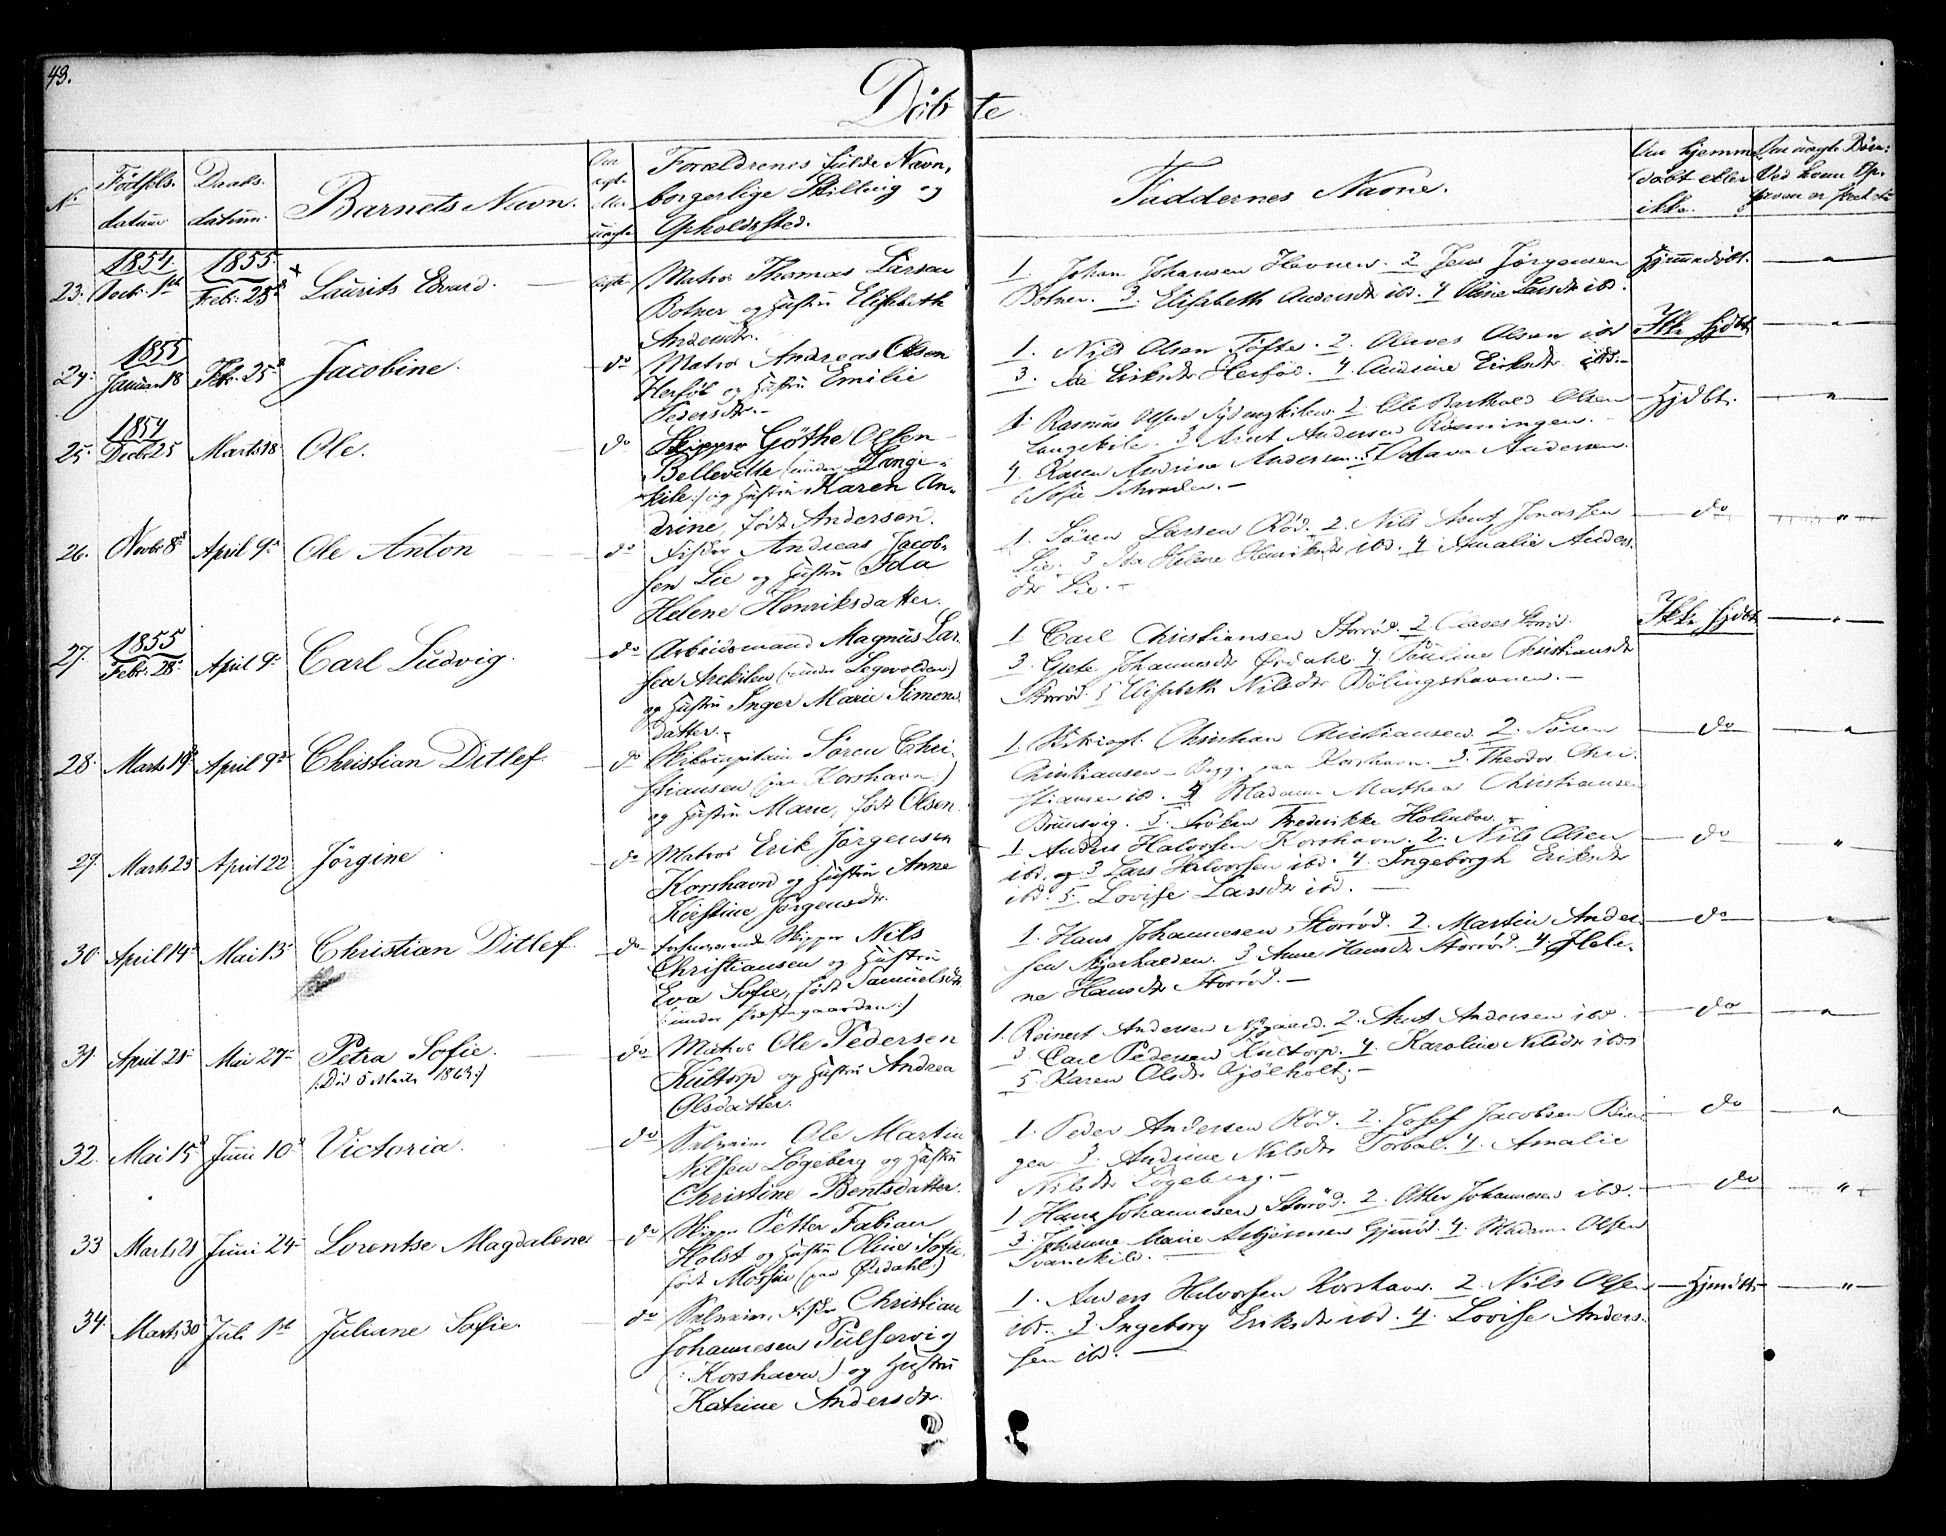 43.
Døbte
No
Fødsels-
datum
Daabs-
datum
Barnets Navn.
Om
ægte
eller
uægte
Forældrenes fulde Navn,
borgerlige Stilling og
Opholdssted.
Faddernes Navne.
Om hjemme-
døbt eller
ikke.
23.
1854.
Octr. 1ste
1855.
Febr. 25de
Laurits Edvard.
ægte
Matros Thomas Larsen
Botner og Hustru Elisabeth
Andersdr.
1 Johan Johansen Havnen. 2 Jens Jørgensen
Botner. 3. Elisabeth Andersdr ibd. 4 Oline Larsdr ibd.
Hjemmedøbt.
"
24.
1855
Januar 18
Febr. 25de
Jacobine.
do
Matros Andreas Olsen
Herføl og Hustru Emilie
Pedersdr.
1. Nils Olsen Tofte. 2. Olaves Olsen ibd
3. Ida Eriksdr Herføl. 4. Andrine Eriksdr ibd.
Ikke hjdbt
"
25.
1854
Decbr 25
Marts 18
Ole.
do
Skipper Gøthe Olsen
Bellevette (:under Lange-
kile:) og Hustru Karen An-
drine, født Andersen.
1. Rasmus Olsen 2. Ole Barthold Olsen
Langekile. 3 Arnt Andersen Rømningen.
4 Karen Andrine Andersen. 5 Octava Andersen
Sofie
Hjdbt.
"
26.
Novbr 8de
April 9de
Ole Anton
do
Fisker Andreas Jacob-
sen Lie og Hustru Ida
Helene Henriksdatter.
1. Søren Larsen Rød. 2. Nils Arnt Jonassen
Lie. 3 Ida Helene Henriksdr ibd. 4 Amalie Anders-
dr Lie.
do
"
27.
1855
Febr. 28
April 9de
Carl Ludvig.
do
Arbeidsmand Magnus Lar-
sen Arekilen (:under Legevolden:)
og Hustru Inger Marie Simons-
datter.
1 Carl Christiansen Storrød. 2 Olaves Storrød.
3. Grete Johannesdr Ørdahl. 4. Pauline Christiansdr
Storrød. 5 Elisabeth Nilsdr Bølingshavnen.
Ikke hjdbt
"
28.
Marts 19
April 9de
Christian Ditlef
do
Skibscapitain Søren Chri-
stiansen (paa Korshavn)
og Hustru Marie, født Olsen.
1. Christian Christiansen. 2. Søren
Christiansen paa Korshavn. 3. Theodor Chri-
stiansen ibd. 4 Madame Mathea Christiansen
Brunsvig. 5. Frøken Frederikke Holmboe.
do
"
29.
Marts 23
April 22
Jørgine
do
Matros Erik Jørgensen
Korshavn og Hustru Anne
Kirstine Jørgensdr.
1 Anders Halvorsen Korshavn. 2. Nils Olsen
ibd. og 3 Lars Halvorsen ibd. 4. Ingeborgh Eriksdr
ibd. 5. Lovise Larsdr ibd.
do
"
30.
April 14
Mai 13
Christian Ditlef.
do
forhenværende Skipper Nils
Christiansen og Hustru
Eva Sofie, født Samuelsdr
(:under Præstegaarden:)
1. Hans Johannesen Storrød. 2. Martin Ander-
sen Nyerhalden. 3 Anne Hansdr Storrød. 4. Hele-
ne Hansdr Storrød.
do
"
31.
April 21
Mai 27
Petra Sofie.
(:Død 5 Marts 1863:)
do
Matros Ole Pedersen
Kultorp og Hustru Andrea
Olsdatter.
1. Reinert Andersen Nygaard. 2. Arnt Andersen ibd.
3. Carl Pedersen Kultorp. 4. Karoline Nilsdr ibd
5. Karen Olsdr Kjølholt.
do
"
32.
Mai 15de
Juni 10de
Victoria.
do
Selveier Ole Martin
Nilsen Løgeberg og Hustru
Christine Bentsdatter.
1. Peder Andersen Rød. 2. Josef Jacobsen Bin-
gen 3. Andrine Nilsdr Torbal. 4. Amalie
Nilsdr Løgeberg.
do
"
33
Marts 21
Juni 24
Lorentse Magdalene
do
Skipper Petter Fabian
Holst og Hustru Oline Sofie,
født Mossin (paa Ørdahl:)
1 Hans Johannesen Storrød. 2. Otter Johannesen ibd.
3. Johanne Marie Asbjørnsen Gjimrød. 4. Madame Olsen
Svanekil.
do
"
34
Marts 30
Juli 1ste
Juliane Sofie.
do
Selveier, Fisker Christian
Johannesen Pulservig
(:Korshavn) og Hustru
Katrine Andersdr.
1. Anders Halvorsen Korshavn. 2. Nils Olsen
ibd. 3 Ingeborg Eriksdr ibd. 4. Lovise Anders-
sen ibd.
Hjemdbt.
"